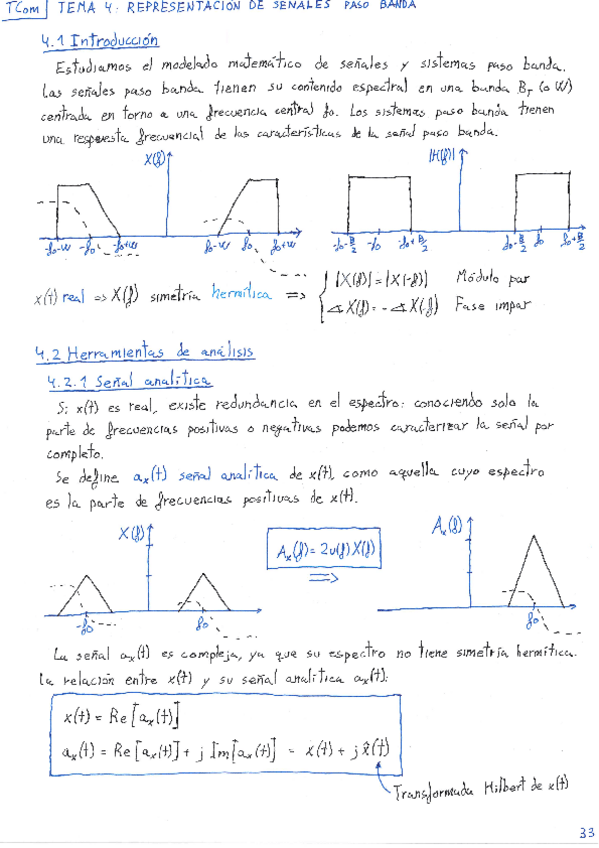 TCom TEMA 4: REPRESENTACIÓN DE SEÑALES PASO BANDA
4.1 Introducción
Estudiamos el modelado matemático de señales y sistemas paso banda.
Las señales paso banda tienen su contenido espectral en una banda B_T (o W)
centrada en torno a una frecuencia central f0. Los sistemas paso banda tienen
una respuesta frecuencial de las características de la señal paso banda.
X(f) |H(f)|
-f0-W -f0 -f0+W f0-W f0 f0+W -f0-B/2 -f0 -f0+B/2 f0-B/2 f0 f0+B/2
x(t) real => X(f) simetría hermítica => { |X(f)| = |X(-f)| Módulo par
∡X(f) = -∡X(-f) Fase impar
4.2 Herramientas de análisis
4.2.1 Señal analítica
Si x(t) es real, existe redundancia en el espectro: conociendo solo la
parte de frecuencias positivas o negativas podemos caracterizar la señal por
completo.
Se define a_x(t) señal analítica de x(t), como aquella cuyo espectro
es la parte de frecuencias positivas de x(t).
X(f) A_x(f) = 2u(f)X(f) A_x(f)
=>
-f0 f0 f0
La señal a_x(t) es compleja, ya que su espectro no tiene simetría hermítica.
La relación entre x(t) y su señal analítica a_x(t):
x(t) = Re[a_x(t)]
a_x(t) = Re[a_x(t)] + j Im[a_x(t)] = x(t) + j x̂(t)
Transformada Hilbert de x(t)
33